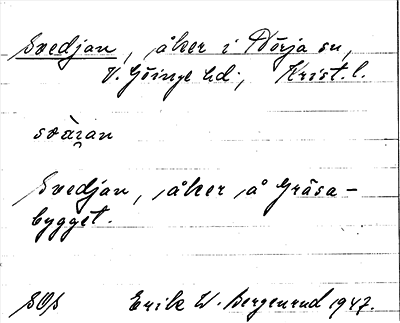 Svedjan, åker i Nörja sn,
V. Göinge hd., Krist. l.
svä̀ʒan
Svedjan, åker å Gräsa-
bygget.
SOS Erik W. Bergenrud 1947.